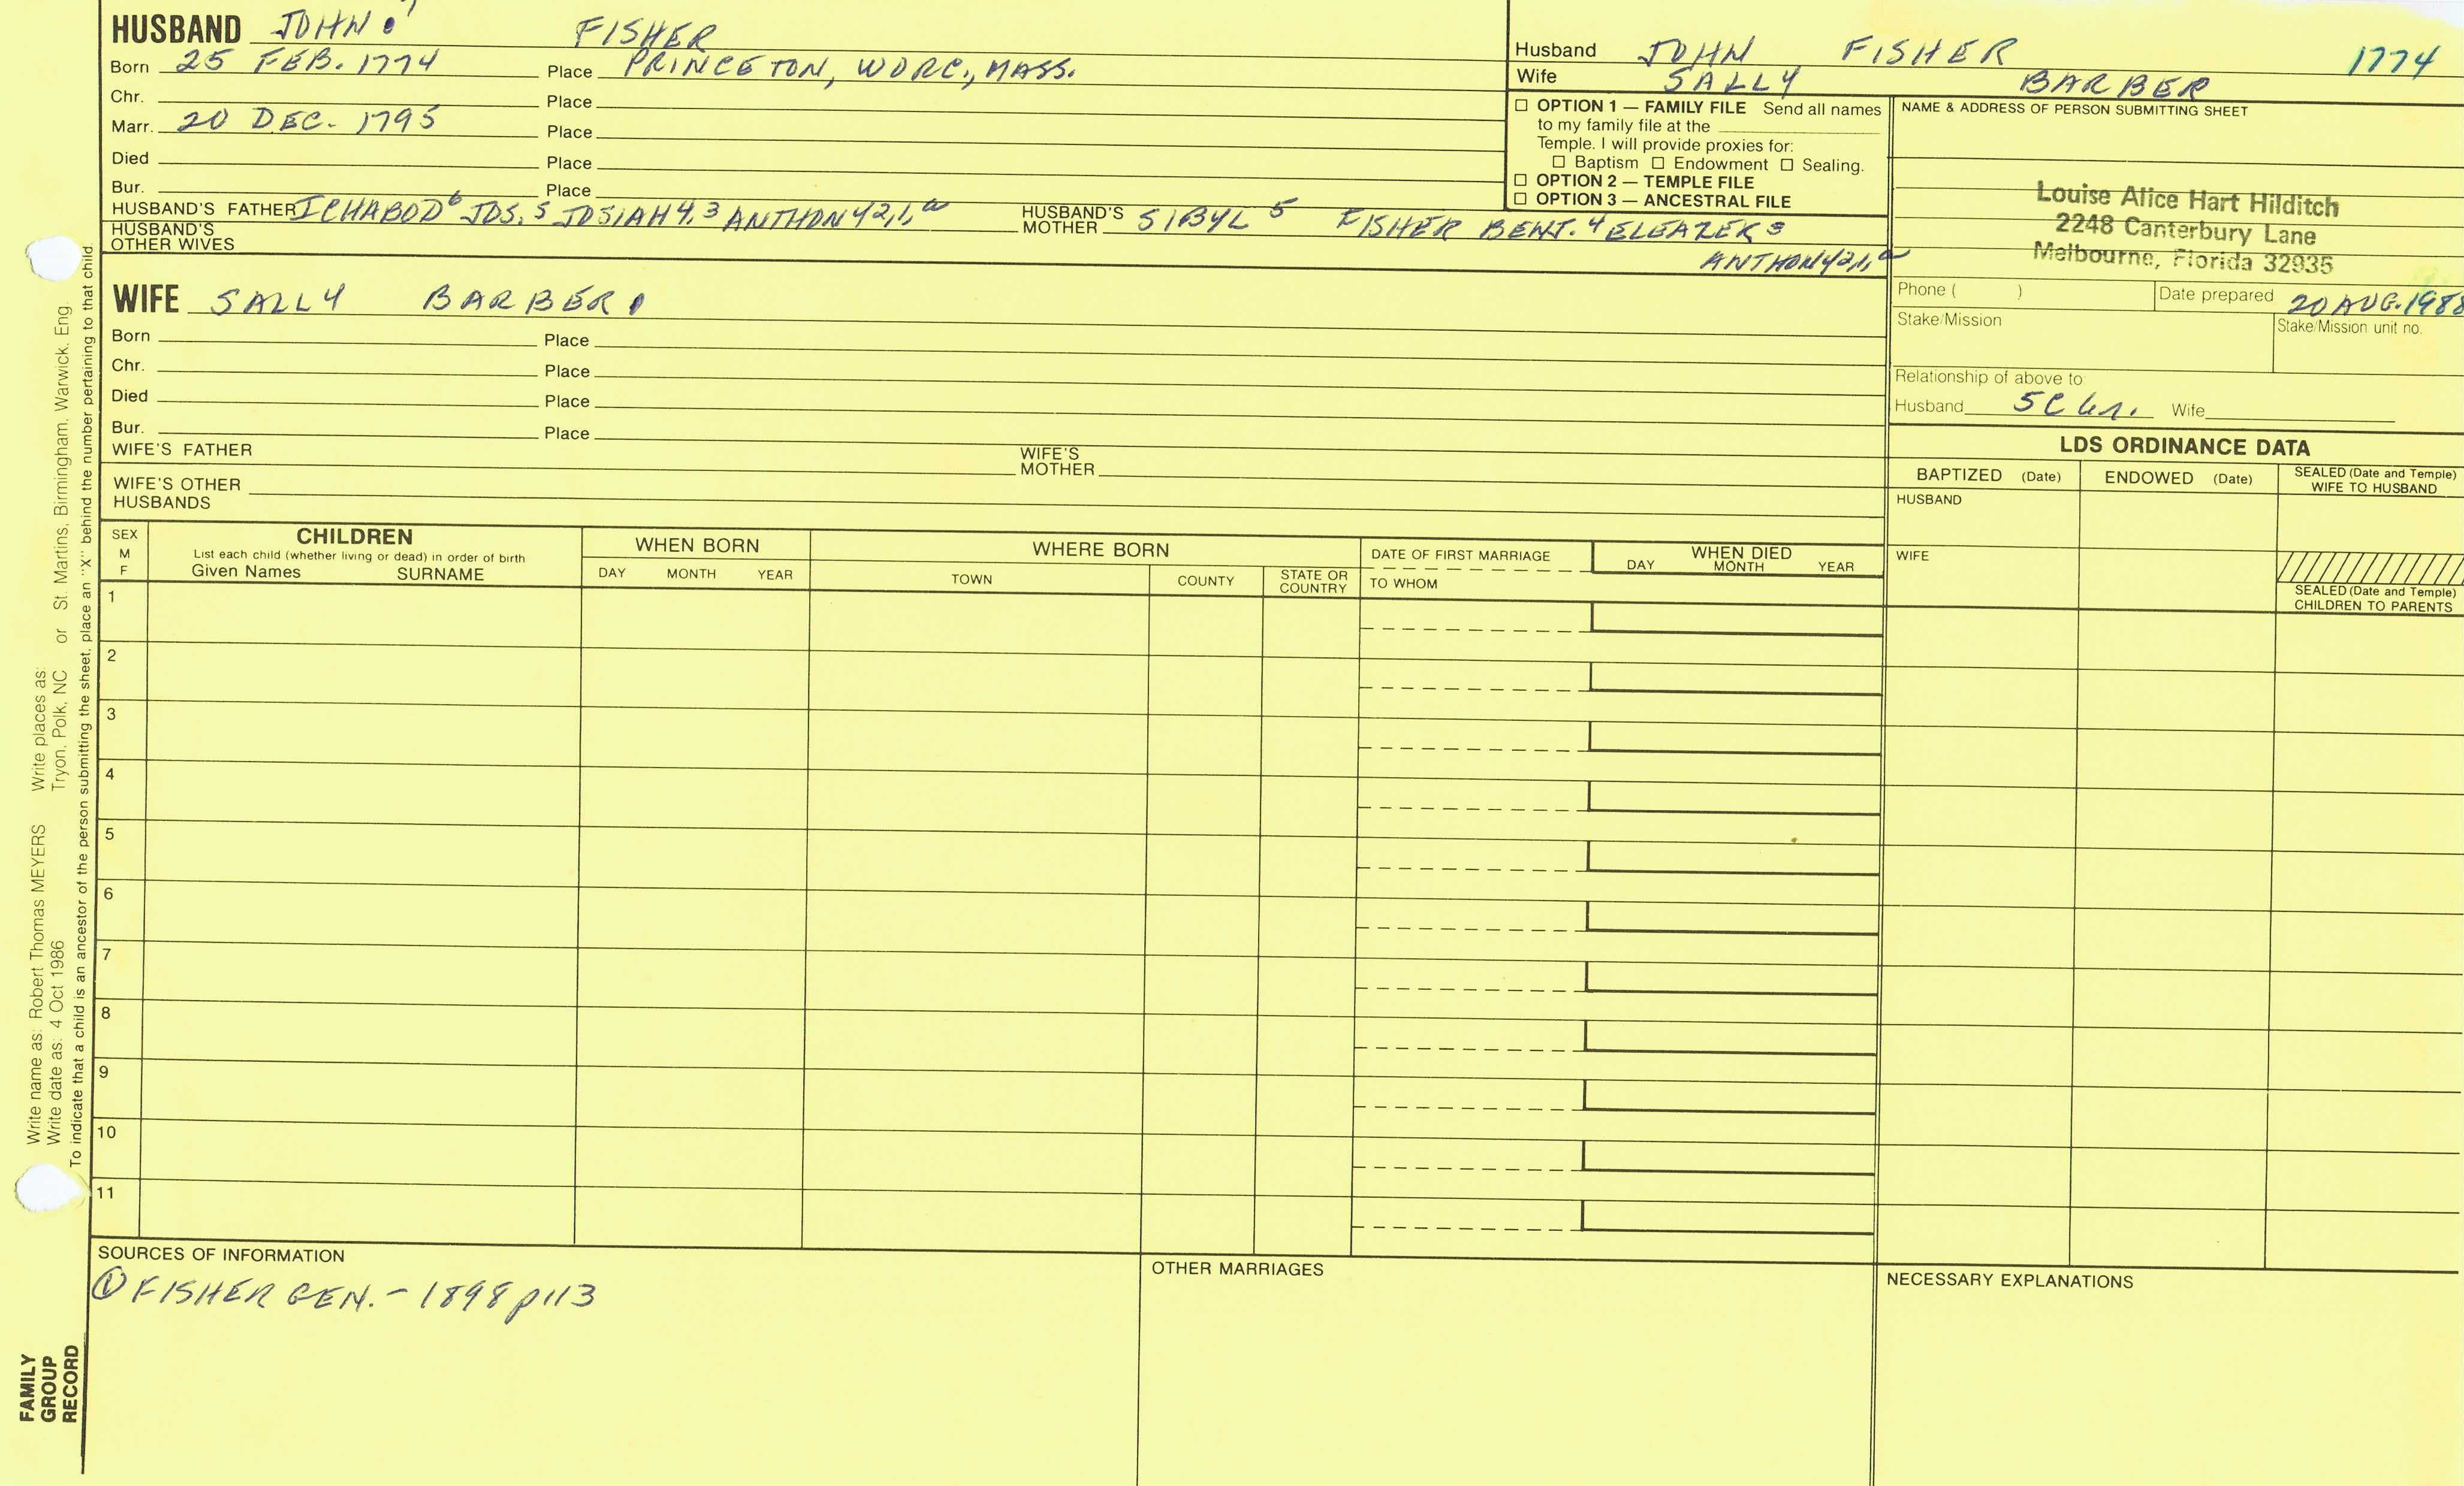 HUSBAND JOHN 7 FISHER
Born 25 FEB. 1774 Place PRINCETON, WORC., MASS.
Chr. Place
Marr. 20 DEC. 1795 Place
Died Place
Bur. Place
HUSBAND'S FATHER ICHABOD 6 JOS. 5 JOSIAH 4,3 ANTHONY 2,1,a HUSBAND'S MOTHER SIBYL 5 FISHER BENT. 4 ELEAZER 3
ANTHONY 2,1,a
HUSBAND'S OTHER WIVES
Husband JOHN FISHER 1774
Wife SALLY BARBER
☐ OPTION 1 — FAMILY FILE Send all names
to my family file at the
Temple. I will provide proxies for:
☐ Baptism ☐ Endowment ☐ Sealing.
☐ OPTION 2 — TEMPLE FILE
☐ OPTION 3 — ANCESTRAL FILE
NAME & ADDRESS OF PERSON SUBMITTING SHEET
Louise Alice Hart Hilditch
2248 Canterbury Lane
Melbourne, Florida 32935
Phone ( ) Date prepared 20 AUG. 1988
Stake/Mission Stake/Mission unit no.
Relationship of above to
Husband 5C Wife
WIFE SALLY BARBER
Born Place
Chr. Place
Died Place
Bur. Place
WIFE'S FATHER WIFE'S MOTHER
WIFE'S OTHER HUSBANDS
LDS ORDINANCE DATA
BAPTIZED (Date) ENDOWED (Date) SEALED (Date and Temple) WIFE TO HUSBAND
HUSBAND
WIFE
SEALED (Date and Temple) CHILDREN TO PARENTS
SEX M F
CHILDREN
List each child (whether living or dead) in order of birth
Given Names SURNAME
WHEN BORN
DAY MONTH YEAR
WHERE BORN
TOWN COUNTY STATE OR COUNTRY
DATE OF FIRST MARRIAGE
TO WHOM
WHEN DIED
DAY MONTH YEAR
1
2
3
4
5
6
7
8
9
10
11
SOURCES OF INFORMATION
① FISHER GEN. - 1898 p113
OTHER MARRIAGES
NECESSARY EXPLANATIONS
Write name as: Robert Thomas MEYERS Write places as:
Write date as: 4 Oct 1986 Tryon, Polk, NC or St. Martins, Birmingham, Warwick, Eng.
To indicate that a child is an ancestor of the person submitting the sheet, place an "X" behind the number pertaining to that child.
FAMILY
GROUP
RECORD